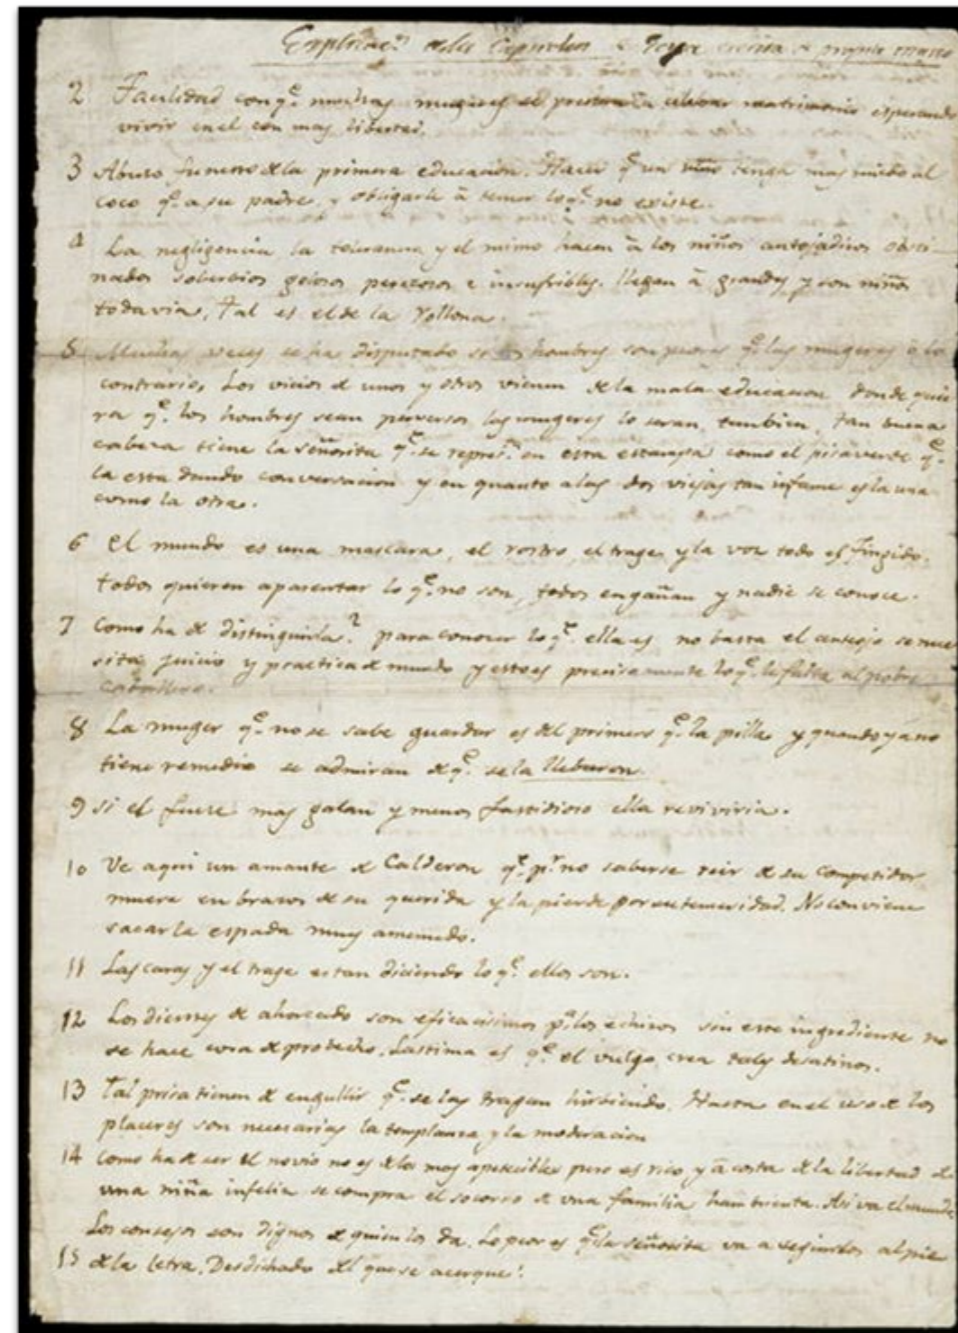 Explicacn de los Caprichos de Goya escrita de propia mano
2 Facilidad con qe. muchas mugeres se prestan a celebrar matrimonio esperando
vivir en el con mas libertad.
3 Abuso funesto de la primera educacion. Hacer qe un niño tenga mas miedo al
coco qe. a su padre, y obligarle â temer lo qe. no existe.
4 La negligencia la tolerancia y el mimo hacen â los niños antojadizos obsti-
nados soberbios golosos perezosos e insufribles. llegan â grandes y son niños
todavia. Tal es el de la Rollona.
5 Muchas veces se ha disputado si los hombres son peores qe. las mugeres ô lo
contrario, Los vicios de unos y otros vienen de la mala educacion donde quie
ra qe. los hombres sean perversos las mugeres lo seran tambien, tan buena
cabeza tiene la señorita qe. se representa en esta estampa como el pisaverde qe.
la esta dando conversacion y en quanto a las dos viejas tan infame es la una
como la otra.
6 El mundo es una mascara, el rostro, el trage y la voz todo es fingido.
todos quieren aparentar lo qe. no son, todos engañan y nadie se conoce.
7 Como ha de distinguirla? para conocer lo qe. ella es no basta el anteojo se nece
sita juicio y practica de mundo y esto es precisamente lo qe. le falta al pobre
caballero.
8 La muger qe. no se sabe guardar es del primero qe. la pilla y quando ya no
tiene remedio se admiran de qe. se la llebaron.
9 Si el fuese mas galan y menos fastidioso ella reviviria.
10 Ve aqui un amante de Calderon qe. pr. no saberse reir de su competidor
muere en brazos de su querida y la pierde por su temeridad. No conviene
sacar la espada muy amenudo.
11 Las caras y el trage estan diciendo lo qe. ellos son.
12 Los dientes de ahorcado son eficacisimos pa. los echizos sin este ingrediente no
se hace cosa de probecho. Lastima es qe. el vulgo crea tales desatinos.
13 Tal prisa tienen de engullir qe. se las tragan hirbiendo. Hasta en el uso de los
placeres son necesarias la templanza y la moderacion
14 Como ha de ser el novio no es de los mas apetecibles pero es rico y â costa de la libertad de
una niña infeliz se compra el socorro de una familia hambrienta. Asi va el mundo
Los consejos son dignos de quien los da. Lo peor es qe la señorita va a seguirlos al pie
15 de la letra. Desdichado del que se acerque!